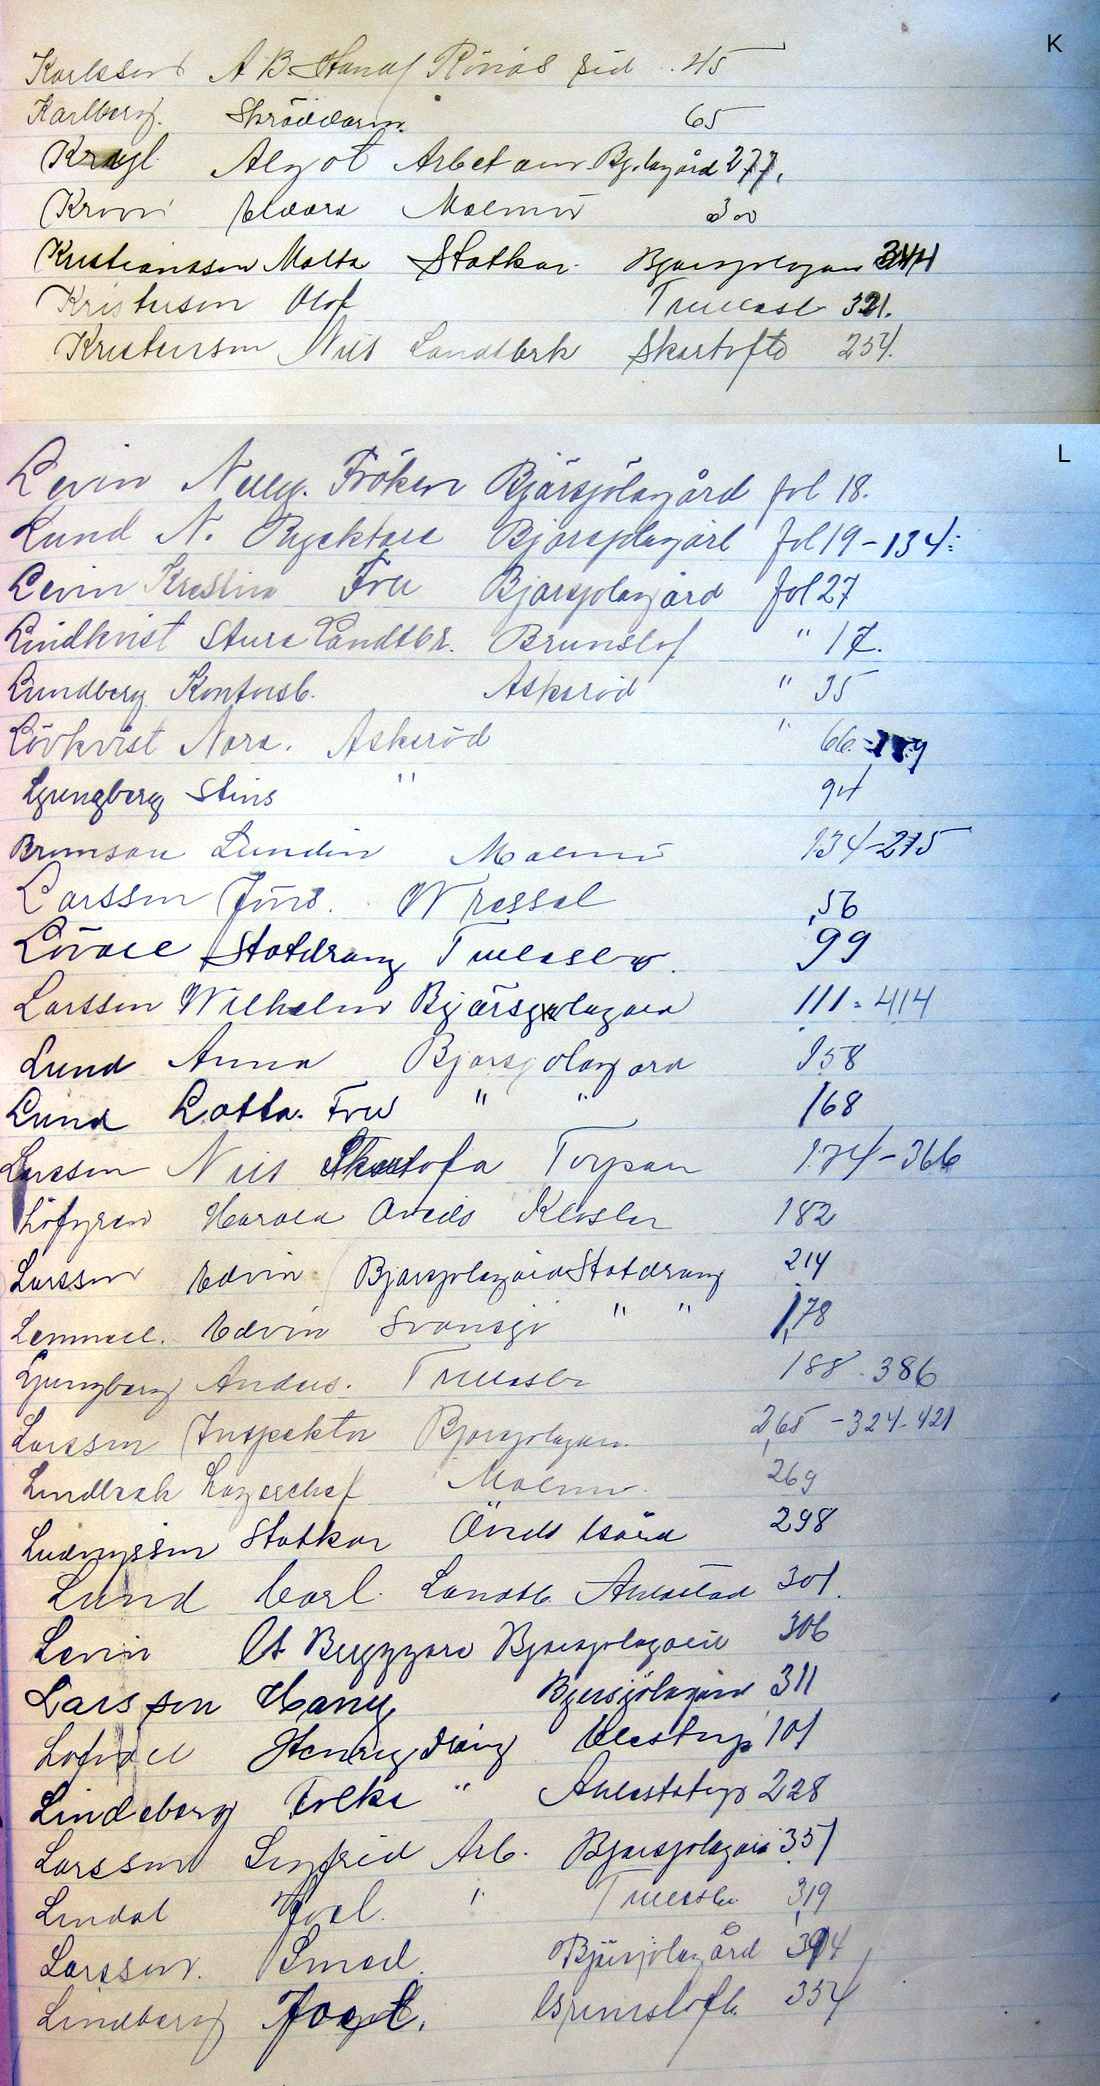 K
Karlsson A B Handl Rönås sid 45
Karlberg. Skräddarm. 65
Kragl Algot Arbetare Bj.lagård 277.
Elvira Malmö 300
Kristiansson Malta Statkar. Bjersjolagaar 344
Kristenson Olof Trulasl 321.
Kristenson Nils Landtbrk Skartofta 254.
L
Levin Nelly. Fröken Bjärsjölagård fol 18.
Lund N. Ryktare Bjarsjolagård fol 19-134:
Levin Kristina Fru Bjarsjolagård fol 27
Lindkvist Sture Landtbr. Brunslöf " 17.
Lundberg Kontorsb. Askeröd " 35
Lövkvist Nora. Askeröd " 66
Ljungberg Stins " 94
Bromsan Lundin Malmö 134-275
Larsson Jöns. Wressel 56
Lövall Statdräng Trulaslov. 99
Larsson Wilhelm Bjärsjolagård 111=414
Lund Anna Bjarsjolagard 158
Lund Lotta. Fru " " 168
Larsson Nils Skartofta Torpare 174-366
Löfgren Harald Öveds Kloster 182
Larsson Edvin Bjarsjolagård Statdräng 214
Lemmell. Edvin Svansjö " " 178
Ljungberg Anders. Trulaslov 188-386
Larsson Inspektor Bjarsjolagaar. 265-324-421
Lindbeck Lagerchef Malmö. 269
Ludvigsson Statkar Öveds 298
Lund Carl. Landtb. Ahlestad 301.
Levin Byggare Bjarsjolagård 306
Larsson Harry Bjersjölagård 311
Löfvall Henry dräng Ullstorp 101
Lindeberg Folke " Ahlestatorp 228
Larsson Sigfrid Arb. Bjarsjolagård 351
Lindal Joel. " Trulaslov 319
Larsson. Smed. Bjärsjölagård 394
Lindberg Joel. Grimstofta 354